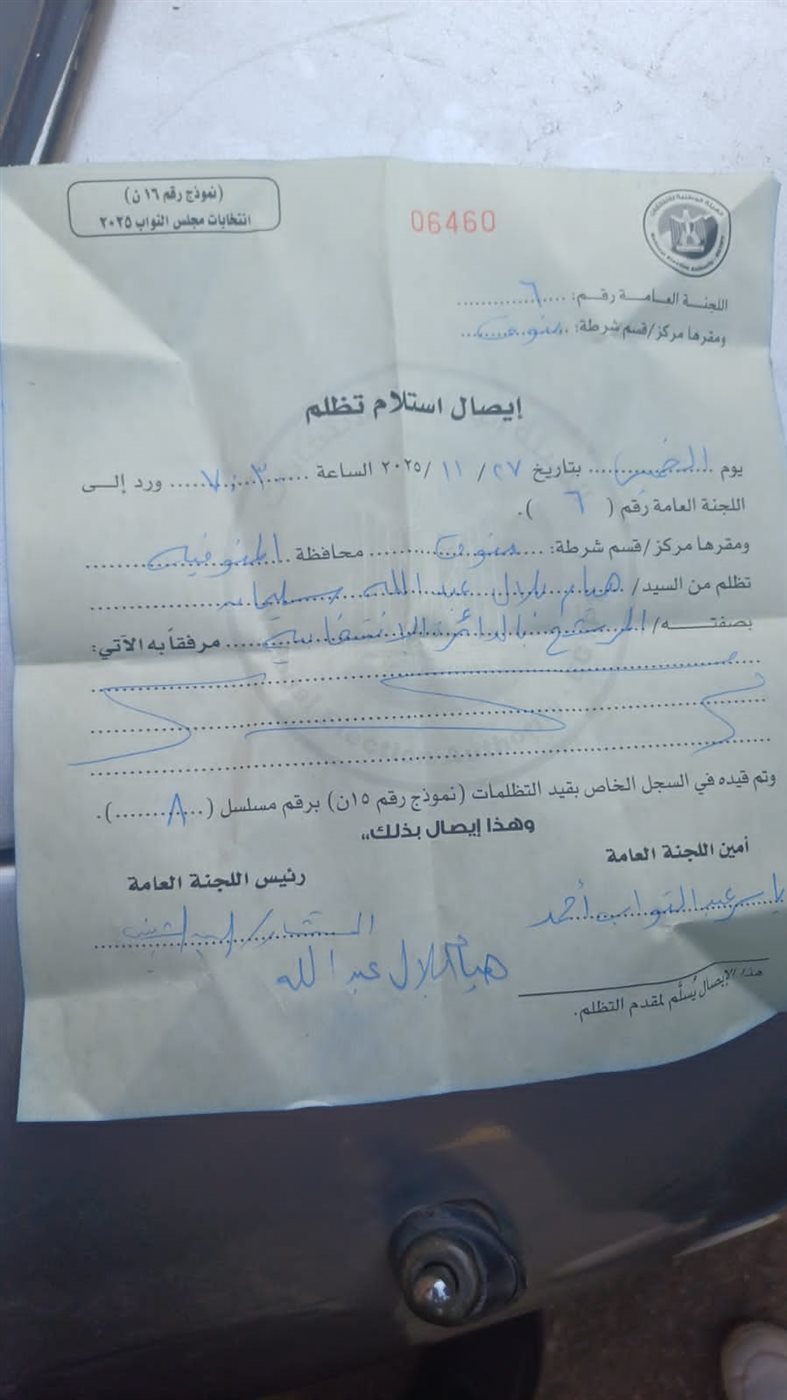 (نموذج رقم ١٦ ن)
انتخابات مجلس النواب ٢٠٢٥
06460
اللجنة العامة رقم: ٦
ومقرها مركز/قسم شرطة: منوف
إيصال استلام تظلم
يوم الخميس بتاريخ ٢٧ / ١١ /٢٠٢٥ الساعة ٧.٣٠ ورد إلى
اللجنة العامة رقم ( ٦ ).
ومقرها مركز/قسم شرطة: منوف محافظة المنوفية
تظلم من السيد/ هيام بلال عبد الله سليمان
بصفته/ المرشح بالدائرة الانتخابية مرفقاً به الآتي:
وتم قيده في السجل الخاص بقيد التظلمات (نموذج رقم ١٥ن) برقم مسلسل ( ٨ ).
وهذا إيصال بذلك،،
أمين اللجنة العامة
رئيس اللجنة العامة
ياسر عبد التواب أحمد
المستشار/
هيام بلال عبد الله
هذا الإيصال يُسلَّم لمقدم التظلم.